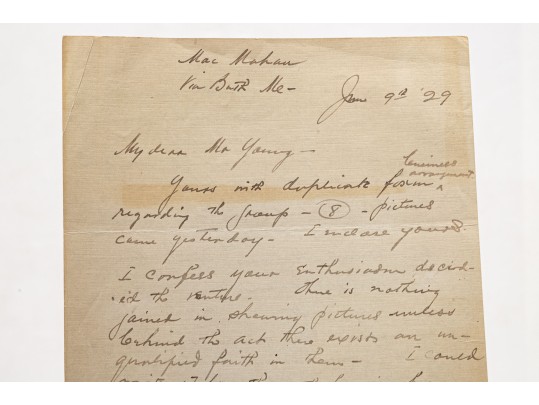 Mac Mahan
Via Bath Me -
June 9th '29
My dear Mr Young -
business
arrangement
Yours with duplicate form ^
regarding the group - 8 - pictures
came yesterday - I enclose yours.
I confess your Enthusiasm decid-
ed the venture. There is nothing
gained in showing pictures unless
behind the act there exists an un-
qualified faith in them - I could